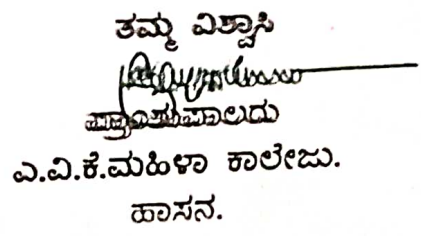 ತಮ್ಮ ವಿಶ್ವಾಸಿ
ಪ್ರಾಂಶುಪಾಲರು
ಎ.ವಿ.ಕೆ.ಮಹಿಳಾ ಕಾಲೇಜು.
ಹಾಸನ.